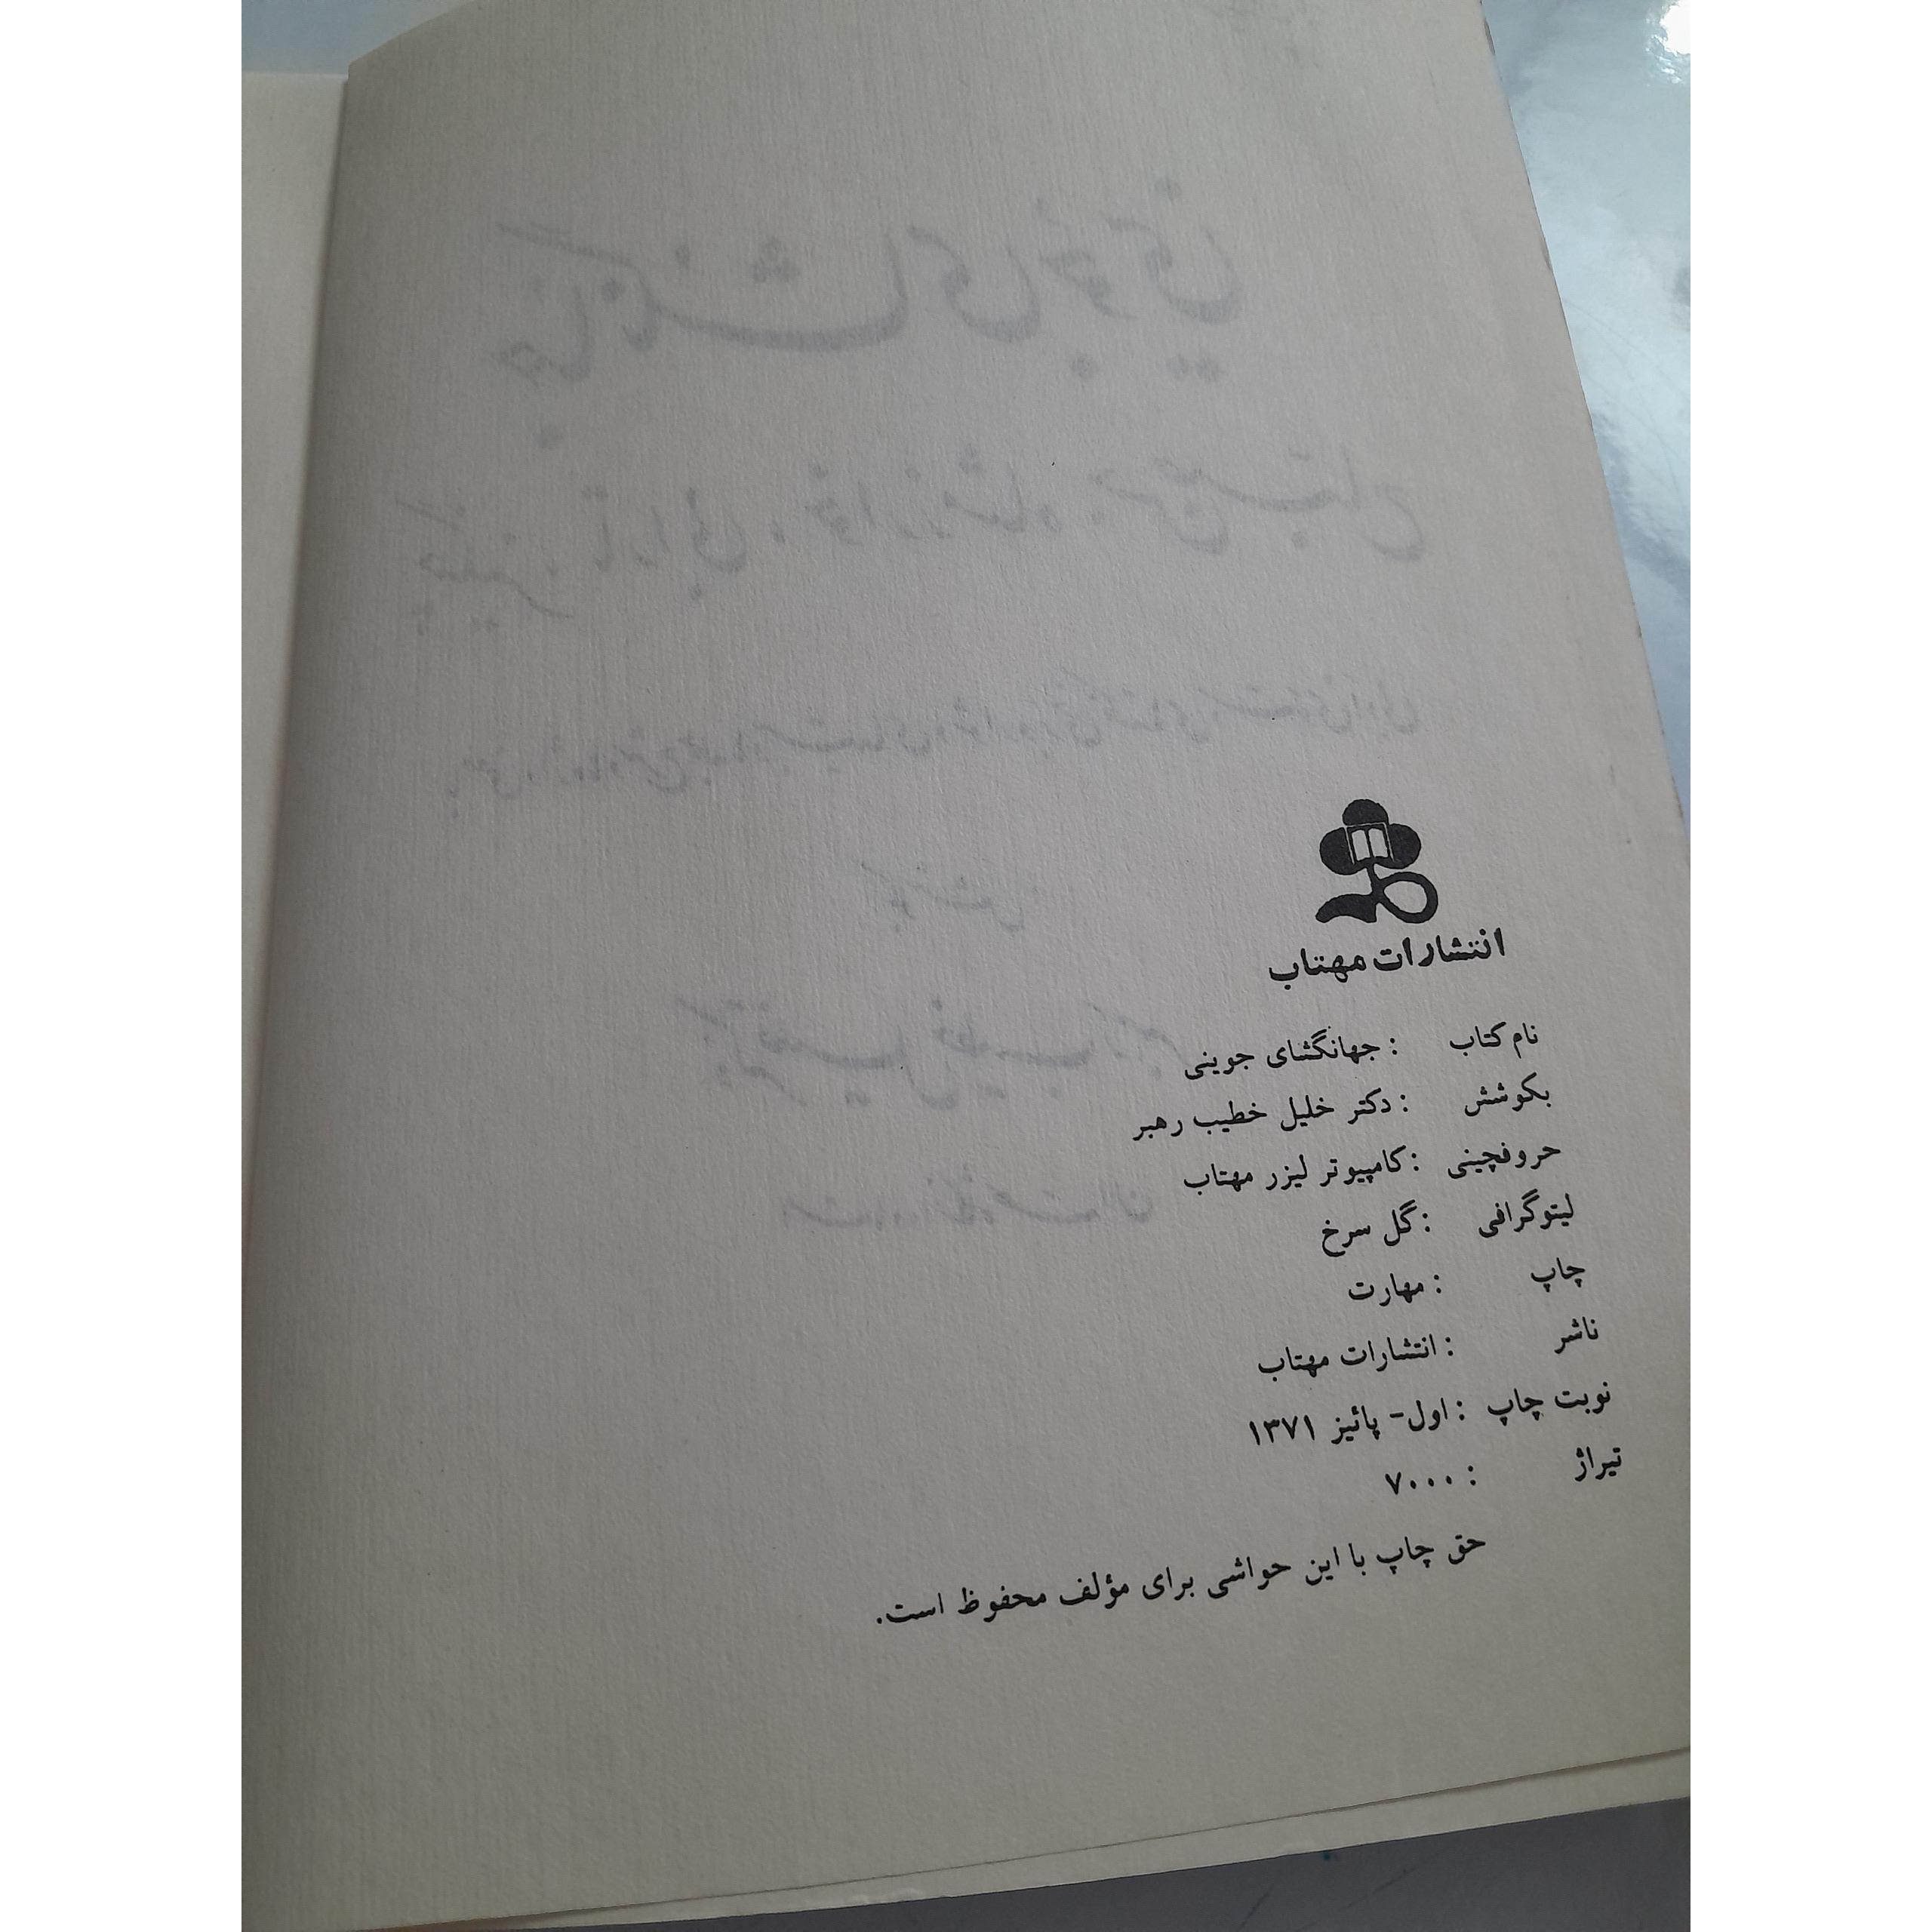 انتشارات مهتاب
نام کتاب : جهانگشای جوینی
بکوشش : دکتر خلیل خطیب رهبر
حروفچینی : کامپیوتر لیزر مهتاب
لیتوگرافی : گل سرخ
چاپ : مهارت
ناشر : انتشارات مهتاب
نوبت چاپ : اول- پائیز ۱۳۷۱
تیراژ : ۷۰۰۰
حق چاپ با این حواشی برای مؤلف محفوظ است.